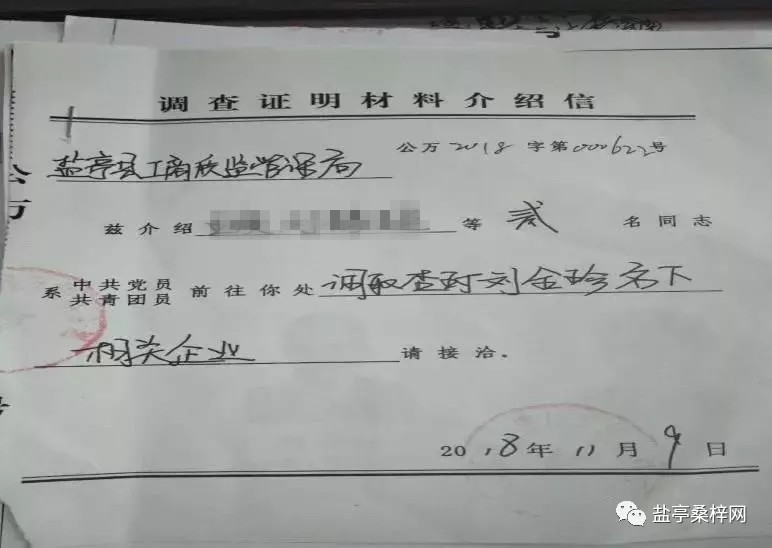 调查证明材料介绍信
公万2018字第000622号
盐亭县工商质监管理局
公万
兹介绍 等 贰 名同志
系 中共党员 共青团员 前往你处 调取查封刘金珍名下
相关企业 请接洽。
2018年11月9日
盐亭桑梓网